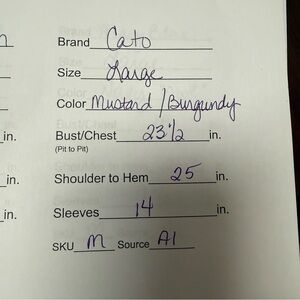 Brand Cato
Size Large
Color Mustard / Burgundy
in. Bust/Chest 23 1/2 in.
(Pit to Pit)
in. Shoulder to Hem 25 in.
in. Sleeves 14 in.
SKU M Source A1